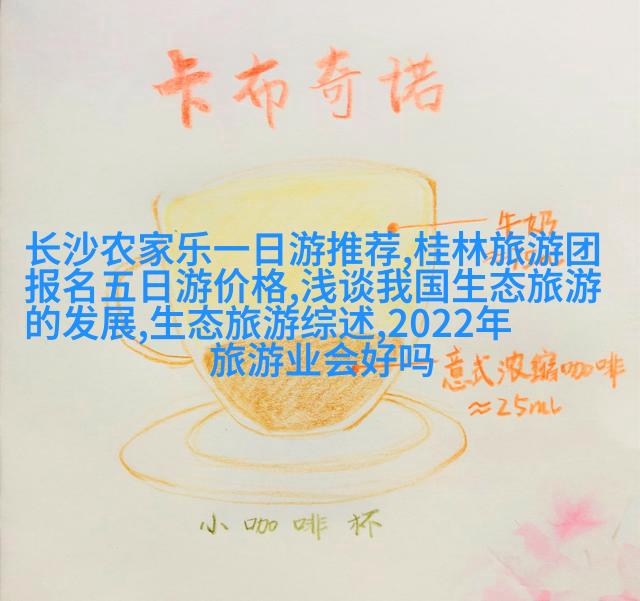 卡布奇诺
牛奶
长沙农家乐一日游推荐,桂林旅游团
报名五日游价格,浅谈我国生态旅游
的发展,生态旅游综述,2022年
旅游业会好吗
意式浓缩咖啡
≈25ml
小咖啡杯